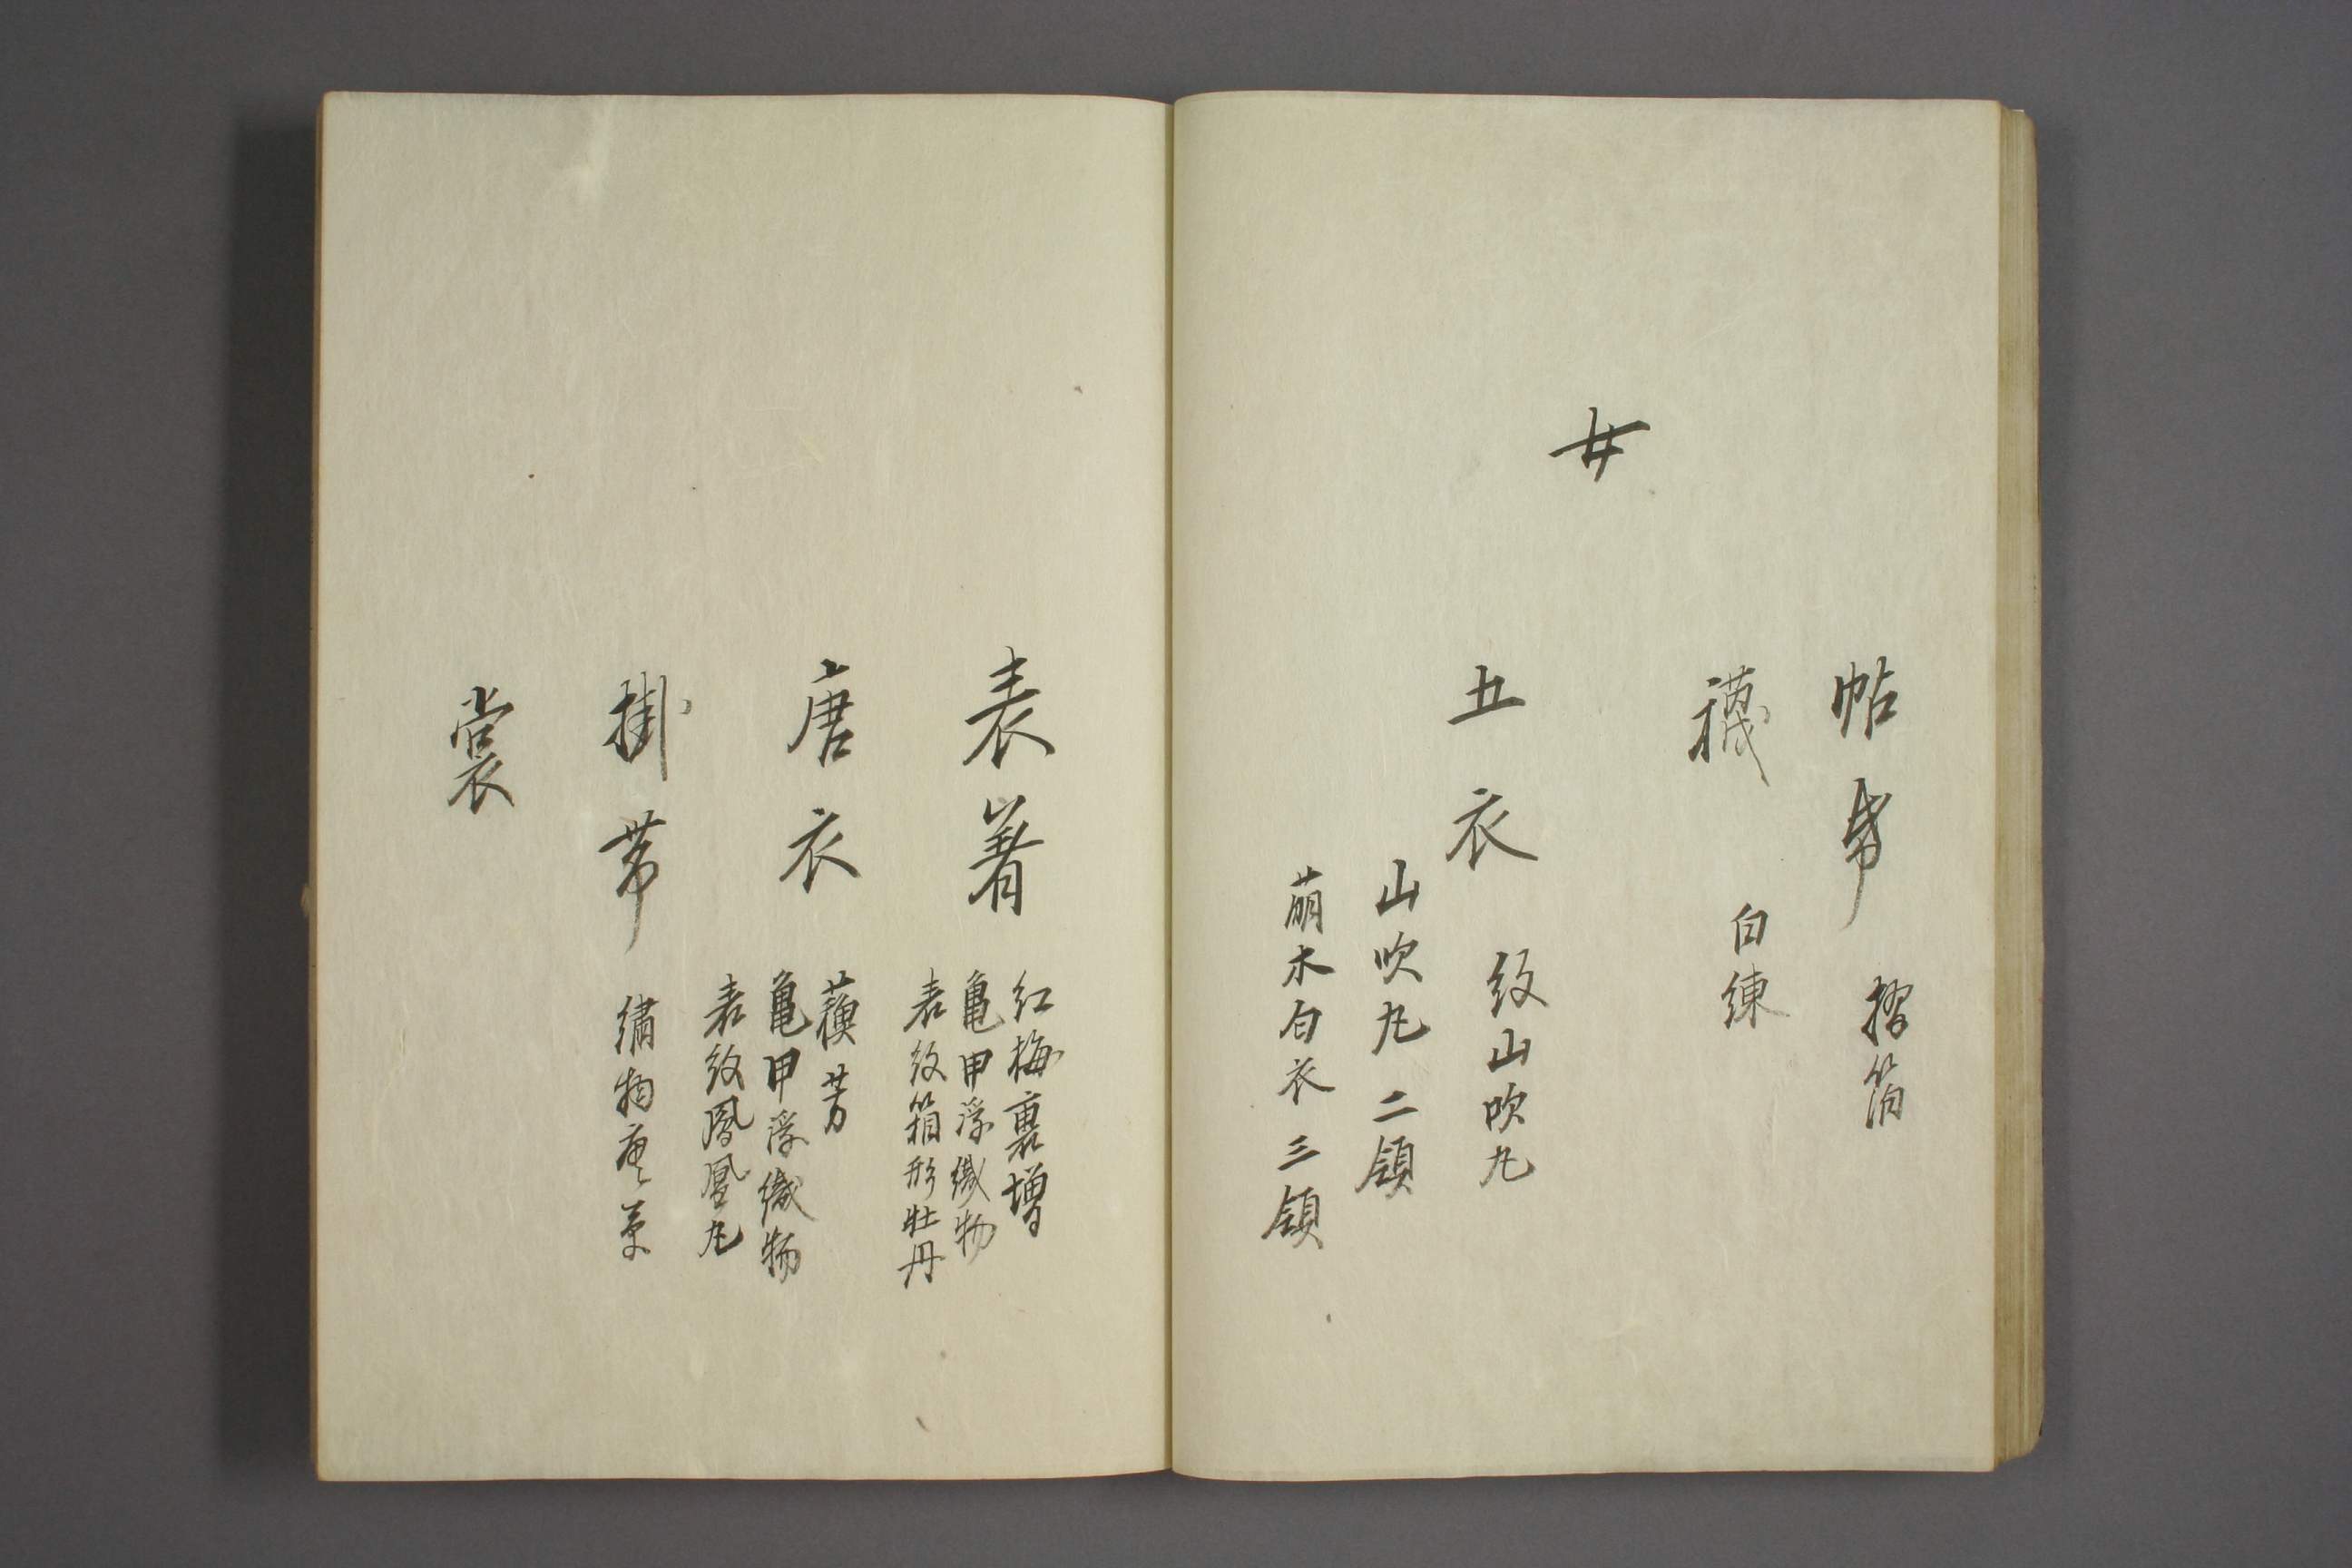 帖帋 摺箔
襪 白練
女
五衣 紋山吹丸
山吹丸 二領
萠木白衣 三領
表着 紅梅裏増
亀甲浮織物
表紋箱形牡丹
唐衣 蘓芳
亀甲浮織物
表紋鳳凰丸
掛帯 繍物唐草
裳